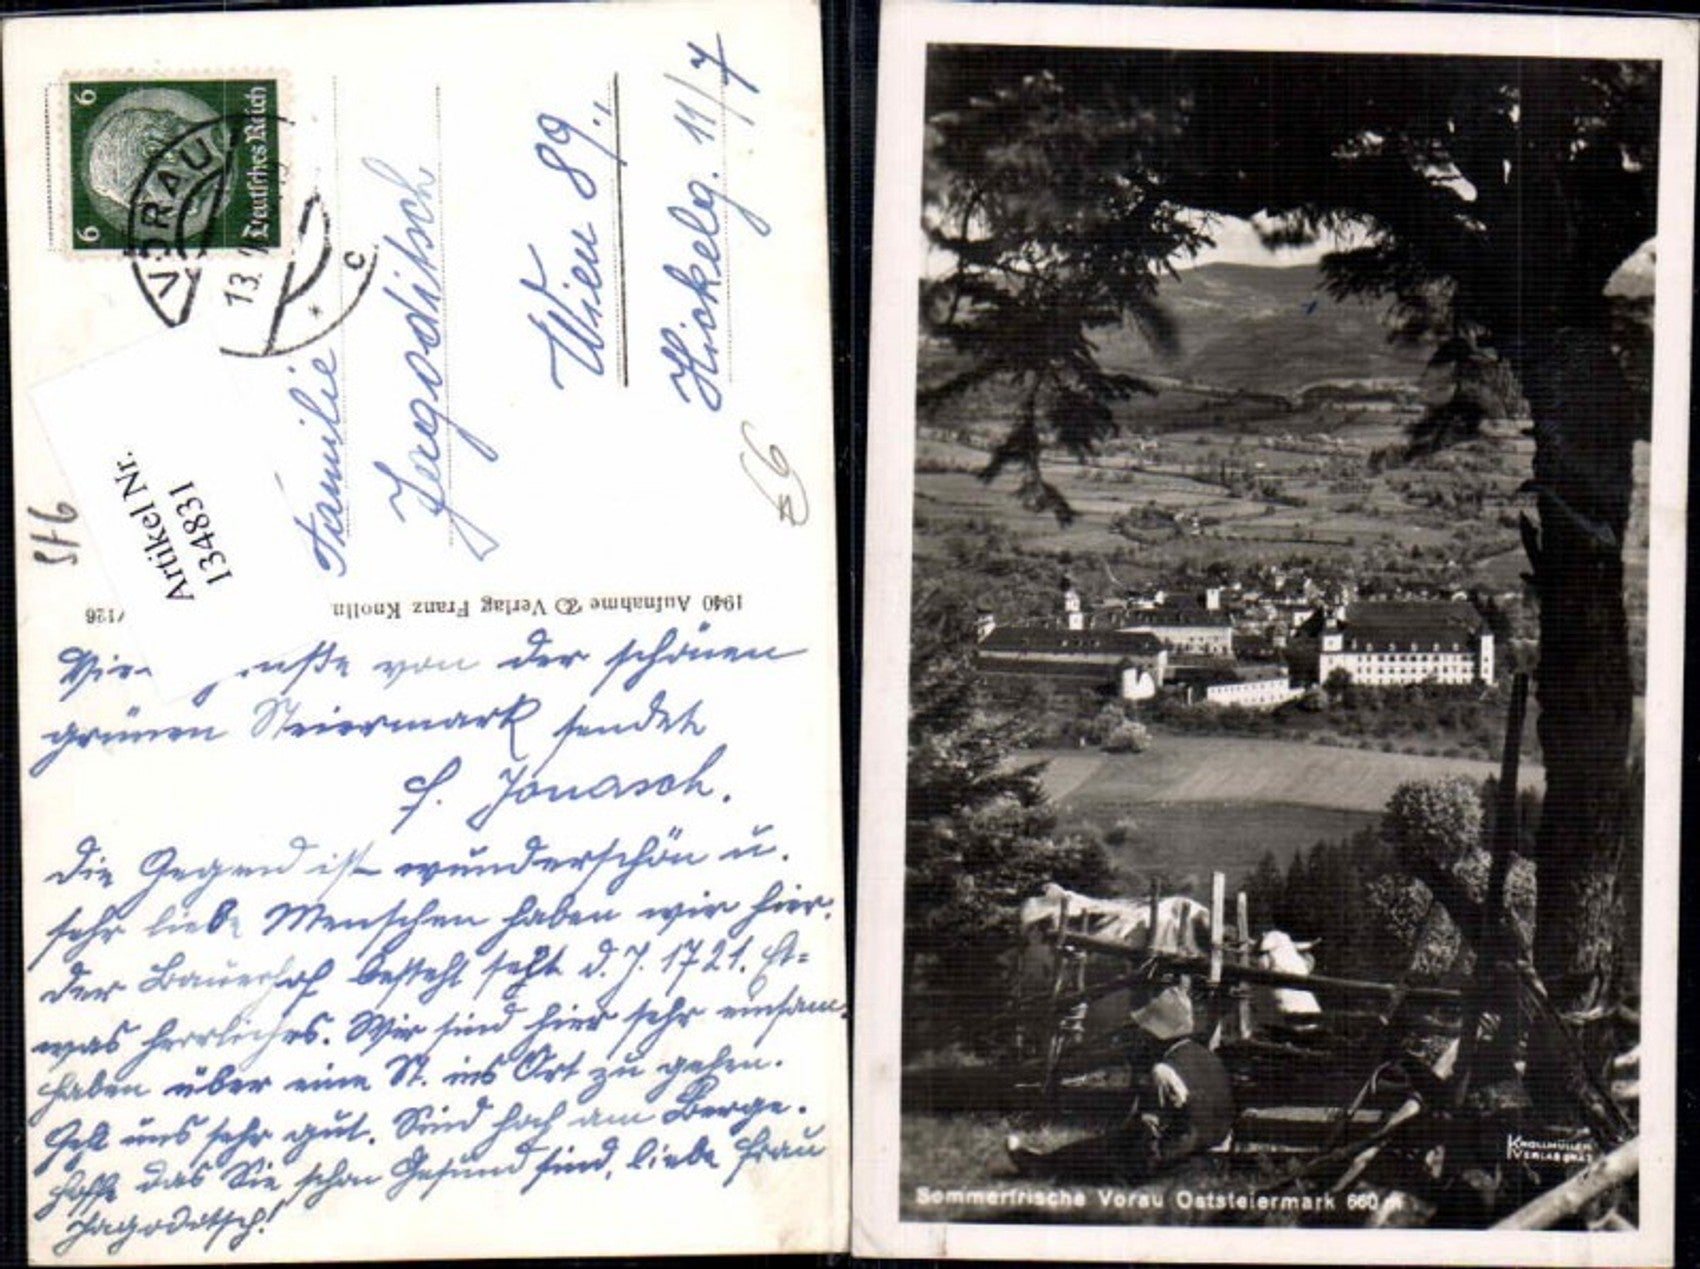 6
6
Deutsches Reich
VORAU
13.
c
Artikel Nr.
134831
Familie
Jagoditsch
Wien 89.,
Hickelg. 11/7
1940 Aufnahme Verlag Franz Knolln
/126
von der schönen
grünen Steiermark sendet
F. Jonasch.
Die Gegend ist wunderschön u.
sehr liebe Menschen haben wir hier.
Der Bauernhof besteht seit d. J. 1721. Et=
was herrliches. Wir sind hier sehr einsam,
haben über eine St. ins Ort zu gehen.
Geht uns sehr gut. Sind hoch am Berge.
Hoffe das Sie schon Gesund sind, liebe Frau
Jagoditsch!
Knollmüller
Verlag Graz
Sommerfrische Vorau Oststeiermark 660 m